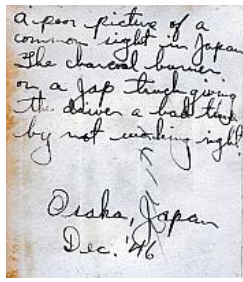 a poor picture of a
common sight in Japan
The charcoal burner
on a Jap truck giving
the driver a bad time
by not working right.
Osaka, Japan
Dec. '46